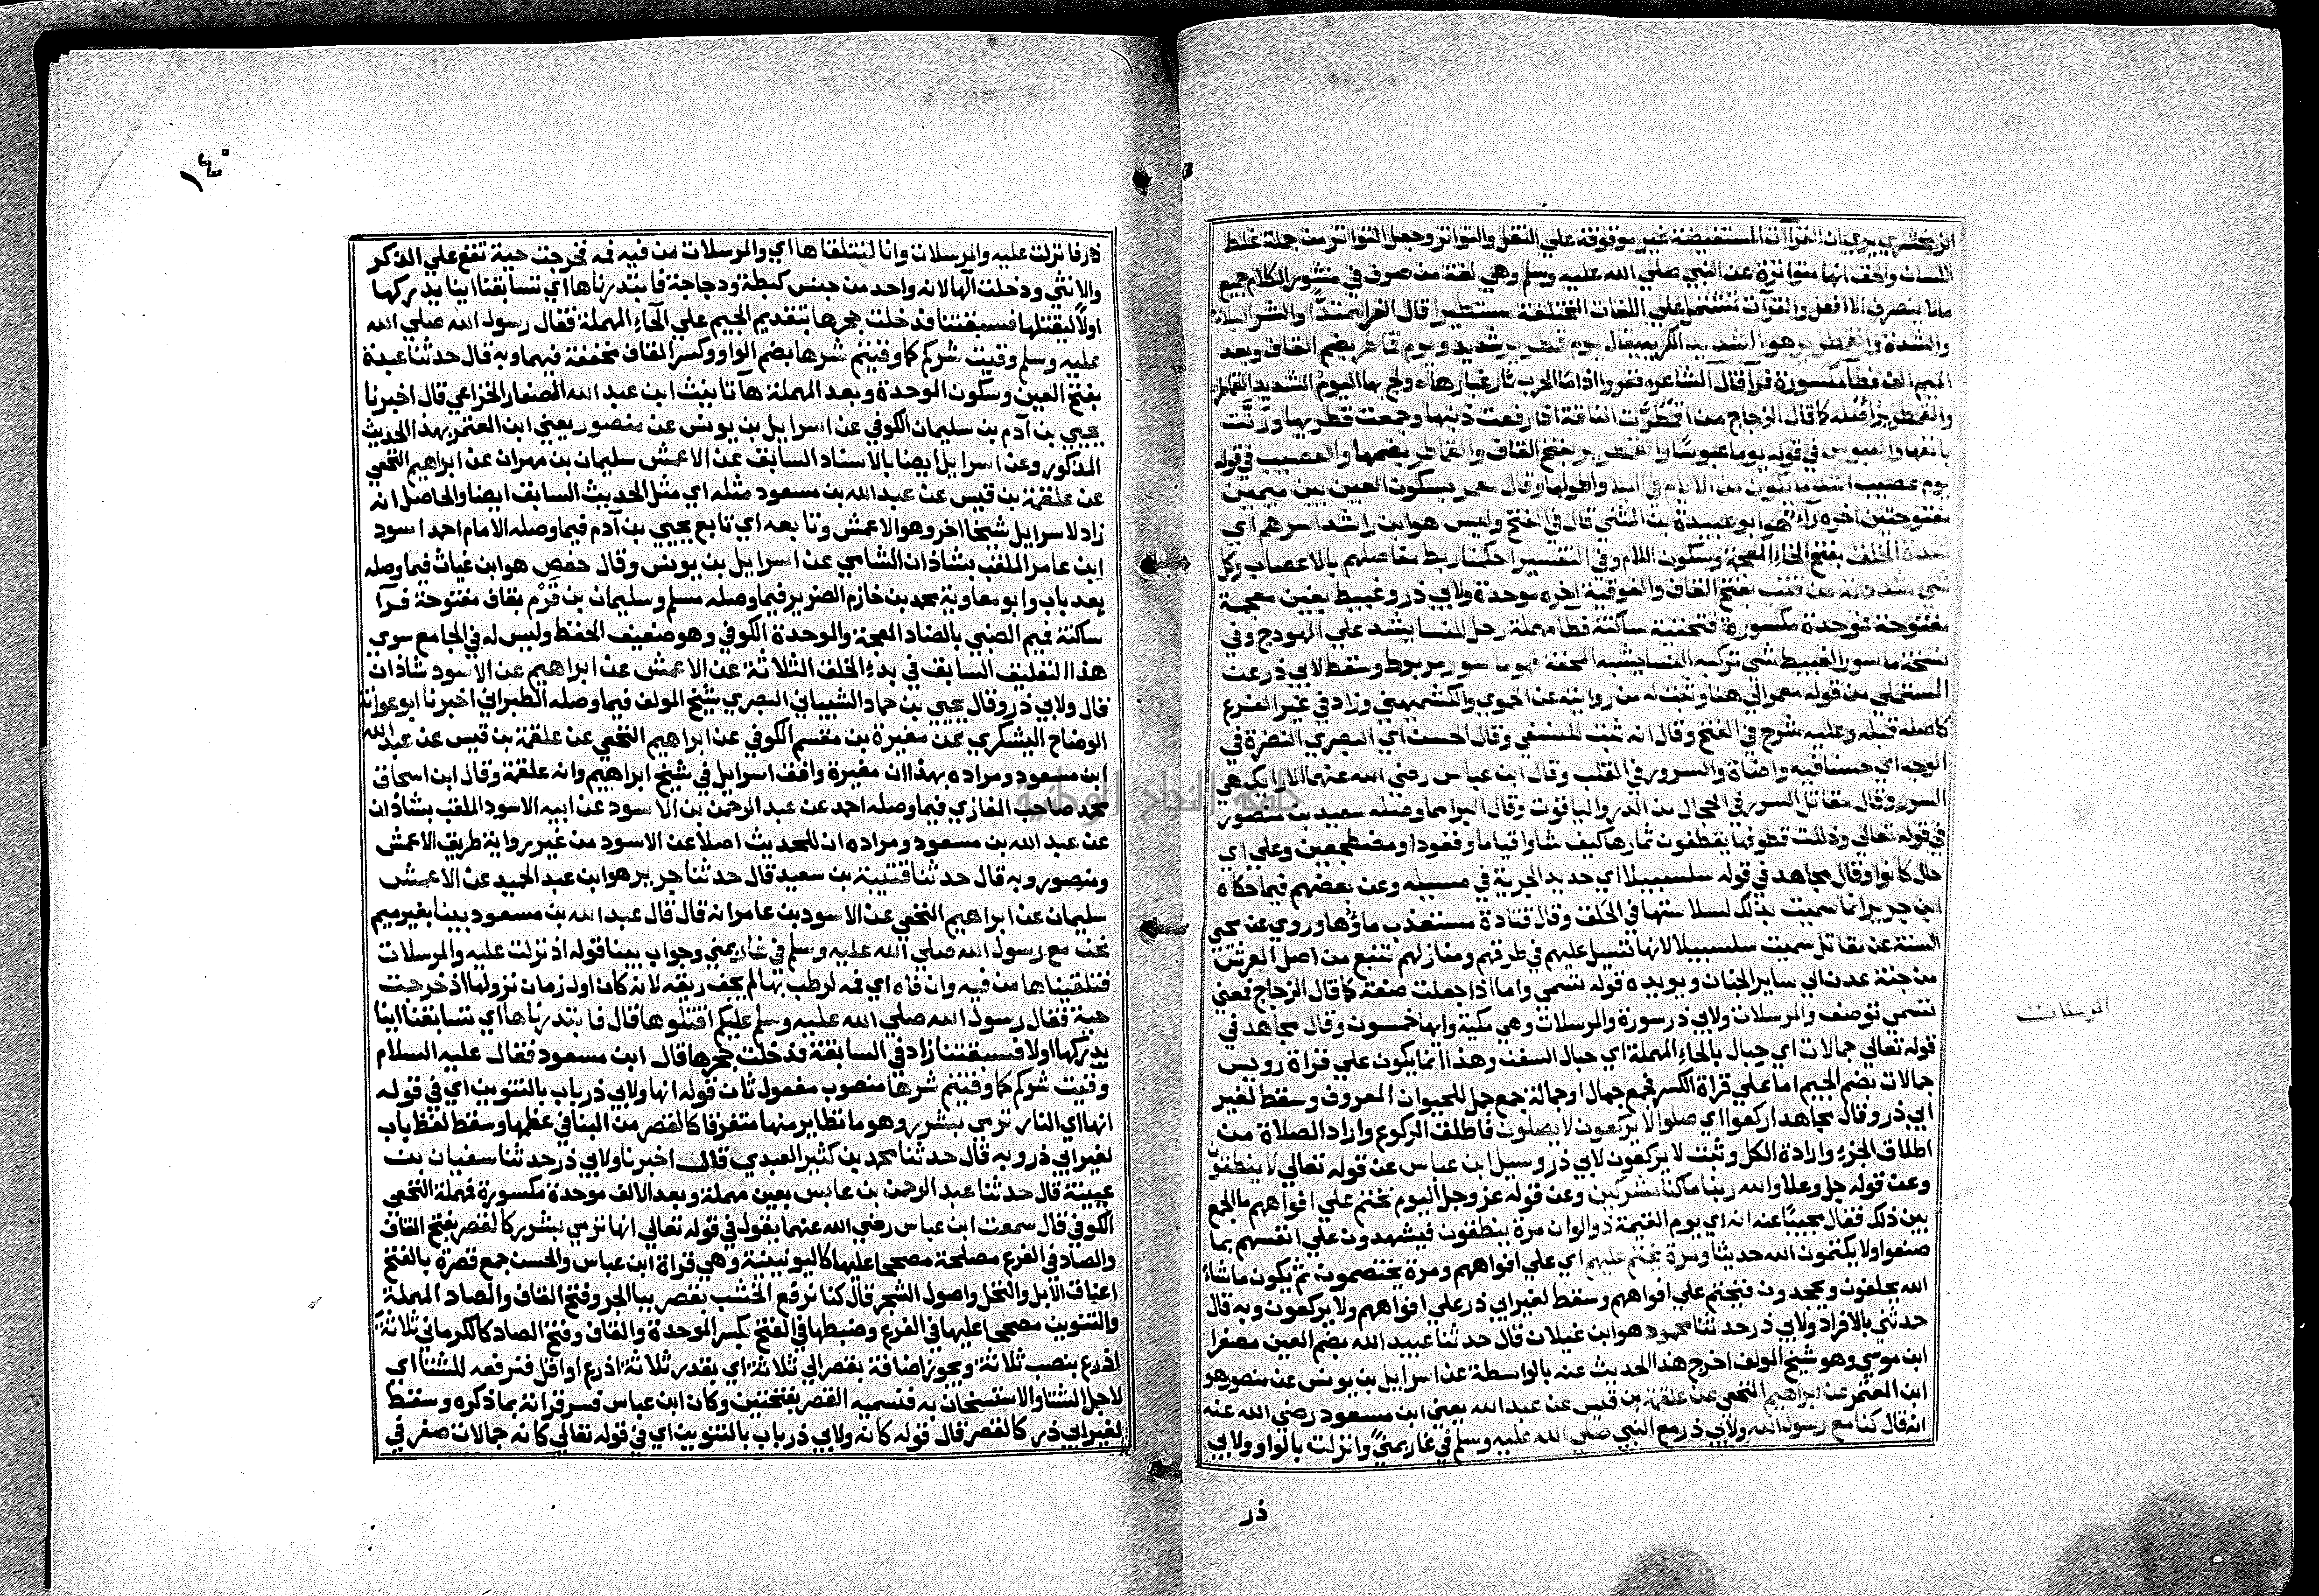 الزمخشري يري ان القراآت المستفيضة غير موقوفة علي النقل والتواتر وجعل التواتر من جملة غلط
اللسان والحق انها متواترة عن النبي صلي الله عليه وسلم وهي لغة من صرف في منثور الكلام جميع
مالا ينصرف الا افعل والقرآن يشتمل علي اللغات المختلفة مستطيرا قال الفرا ممتدا والشر البلاء
والشدة والقمطرير هو الشديد الكريه يقال يوم قمطرير شديد ويوم قماطر بضم القاف وبعد
الميم الف فطا مكسورة فرا قال الشاعر ففروا اذا ما الحرب ثار غبارها ولج بها اليوم الشديد القماطر
والقمطرير اصله كما قال الزجاج من اقمطرت الناقة اذا رفعت ذنبها وجمعت قطريها وزمت
بانفها والعبوس في قوله يوما عبوسا والقمطرير بفتح القاف والقماطر بضمها والعصيب في قوله
يوم عصيب اشد ما يكون من الايام في البلا واطولها وقال معمر بسكون العين بين ميمين
مفتوحتين اخره راء هو ابو عبيدة بن المثني قال في الفتح وليس هو ابن راشد اسرهم اي
شدة الخلق بفتح الخاء المعجمة وسكون اللام وفي التفسير احكمنا ربط مفاصلهم بالاعصاب وكل
شي شددته من قتب بفتح القاف والفوقية اخره موحدة ولابي ذر وغبيط بغين معجمة
مفتوحة فموحدة مكسورة فتحتية ساكنة فطا مهملة رحل للنسا يشد علي الهودج وفي
نسخة ماسور الغبيط شي تركبه النسا يشبه المحفة فهو ما سور مربوط وسقط لابي ذر عن
المستملي من قوله معمر الي هنا وثبت له من روايته عن الحموي والكشميهني وزاد في غير الفرع
كاصله قبله وعليه شرح في الفتح وقال انه ثبت للنسفي وقال الحسن اي البصري النضرة في
الوجه اي حسنا فيه واضاة والسرور في القلب وقال ابن عباس رضي الله عنهما الارايك هي
السرر وقال مقاتل السرر في الحجال من الدر والياقوت وقال البرا مما وصله سعيد بن منصور
في قوله تعالي وذللت قطوفها يقطفون ثمارها كيف شاوا قياما وقعودا ومضطجعين وعلي اي
حال كانوا وقال مجاهد في قوله سلسبيلا اي حديد الجرية في مسيله وعن بعضهم فيما حكاه
ابن جرير انما سميت بذلك لسلاستها في الحلق وقال قتادة مستعذب ماؤها وروي عن محي
السنة عن مقاتل سميت سلسبيلا لانها تسيل عليهم في طرقهم ومنازلهم تنبع من اصل العرش
من جنة عدن الي ساير الجنان ويويده قوله تسمي واما اذا جعلت صفة كما قال الزجاج فمعني
تسمي توصف والمرسلات ولابي ذر سورة والمرسلات وهي مكية وايها خمسون وقال مجاهد في
قوله تعالي جمالات اي حبال بالحاء المهملة اي حبال السفن وهذا انما يكون علي قراة رويس
جمالات بضم الجيم اما علي قراة الكسر فجمع جمال او جمالة جمع جمل للحيوان المعروف وسقط لغير
ابي ذر وقال مجاهد اركعوا اي صلوا لا يركعون لا يصلون فاطلق الركوع واراد الصلاة من
اطلاق الجزء وارادة الكل وثبت لا يركعون لابي ذر وسيل ابن عباس عن قوله تعالي لا ينطقون
وعن قوله جل وعلا والله ربنا ما كنا مشركين وعن قوله عز وجل اليوم نختم علي افواههم ما الجمع
بين ذلك فقال مجيبا عنه انه اي يوم القيمة ذو الوان مرة ينطقون فيشهدون علي انفسهم بما
صنعوا ولا يكتمون الله حديثا ومرة يختم عليهم اي علي افواههم ومرة يختصمون ثم يكون ما شاء
الله يحلفون ويجحدون فيختم علي افواههم وسقط لغير ابي ذر علي افواههم ولا يركعون وبه قال
حدثني بالافراد ولابي ذر حدثنا محمود هو ابن غيلان قال حدثنا عبيد الله بضم العين مصغرا
ابن موسي وهو شيخ المولف اخرج هذا الحديث عنه بالواسطة عن اسرايل بن يونس عن منصور هو
ابن المعتمر عن ابراهيم النخعي عن علقمة بن قيس عن عبد الله يعني ابن مسعود رضي الله عنه
انه قال كنا مع رسول الله ولابي ذر مع النبي صلي الله عليه وسلم في غار بمني وانزلت بالواو ولابي
ذر
المرسلات
١٤٠
ذر فانزلت عليه والمرسلات وانا لنتلقاها اي والمرسلات من فيه فمه فخرجت حية تقع علي الذكر
والانثي ودخلت الها لانه واحد من جنس كبطة ودجاجة فابتدرناها اي تسابقنا اينا يدركها
اولا ليقتلها فسبقتنا فدخلت جحرها بتقديم الجيم علي الحاء المهملة فقال رسول الله صلي الله
عليه وسلم وقيت شركم كما وقيتم شرها بضم الواو وكسر القاف مخففة فيهما وبه قال حدثنا عبدة
بفتح العين وسكون الموحدة وبعد المهملة ها تانيث ابن عبد الله الصفار الخزاعي قال اخبرنا
يحيي بن آدم بن سليمان الكوفي عن اسرايل بن يونس عن منصور يعني ابن المعتمر بهذا الحديث
المذكور وعن اسرايل ايضا بالاسناد السابق عن الاعمش سليمان بن مهران عن ابراهيم النخعي
عن علقمة بن قيس عن عبد الله بن مسعود مثله اي مثل الحديث السابق ايضا والحاصل انه
زاد لاسرايل شيخا اخر وهو الاعمش وتابعه اي تابع يحيي بن آدم فيما وصله الامام احمد اسود
ابن عامر الملقب بشاذان الشامي عن اسرايل بن يونس وقال حفص هو ابن غياث فيما وصله
بعد باب وابو معاوية محمد بن خازم الضرير فيما وصله مسلم وسليمان بن قرم بقاف مفتوحة فرآ
ساكنة فميم الضبي بالضاد المعجمة والموحدة الكوفي وهو ضعيف الحفظ وليس له في الجامع سوي
هذا التعليق السابق في بدء الخلق الثلاثة عن الاعمش عن ابراهيم عن الاسود شاذان
قال ولابي ذر وقال يحيي بن حماد الشيباني البصري شيخ المولف فيما وصله الطبراني اخبرنا ابو عوانة
الوضاح اليشكري عن مغيرة بن مقسم الكوفي عن ابراهيم النخعي عن علقمة بن قيس عن عبد الله
ابن مسعود ومراده بهذا ان مغيرة وافق اسرايل في شيخ ابراهيم وانه علقمة وقال ابن اسحاق
محمد صاحب المغازي فيما وصله احمد عن عبد الرحمن بن الاسود عن ابيه الاسود الملقب بشاذان
عن عبد الله بن مسعود ومراده ان للحديث اصلا عن الاسود من غير رواية طريق الاعمش
ومنصور وبه قال حدثنا قتيبة بن سعيد قال حدثنا جرير هو ابن عبد الحميد عن الاعمش
سليمان عن ابراهيم النخعي عن الاسود بن عامر انه قال قال عبد الله بن مسعود بينا بغير ميم
نحن مع رسول الله صلي الله عليه وسلم في غار بمني وجواب بينا قوله اذ نزلت عليه والمرسلات
فتلقيناها من فيه وان فاه اي فمه لرطب بها لم يجف ريقه لانه كان اول زمان نزولها اذ خرجت
حية فقال رسول الله صلي الله عليه وسلم عليكم اقتلوها قال فابتدرناها اي تسابقنا اينا
يدركها اولا فسبقتنا زاد في السابقة فدخلت جحرها قال ابن مسعود فقال عليه السلام
وقيت شركم كما وقيتم شرها منصوب مفعول ثان قوله انها ولابي ذر باب بالتنوين اي في قوله
انها اي النار ترمي بشرر وهو ما تطاير منها متفرقا كالقصر من البنا في عظمها وسقط لفظ باب
لغير ابي ذر وبه قال حدثنا محمد بن كثير العبدي قال اخبرنا ولابي ذر حدثنا سفيان بن
عيينة قال حدثنا عبد الرحمن بن عابس بعين مهملة وبعد الالف موحدة مكسورة فمهملة النخعي
الكوفي قال سمعت ابن عباس رضي الله عنهما يقول في قوله تعالي انها ترمي بشرر كالقصر بفتح القاف
والصاد في الفرع مصلحة مصححا عليها كاليونينية وهي قراة ابن عباس والحسن جمع قصرة بالفتح
اعناق الابل والنخل واصول الشجر قال كنا نرفع الخشب بقصر ببا الجر وفتح القاف والصاد المهملة
والتنوين مصححا عليها في الفرع وضبطها في الفتح بكسر الموحدة والقاف وفتح الصاد كالكرماني ثلاثة
اذرع بنصب ثلاثة ويجوز اضافة بقصر الي ثلاثة اي بقدر ثلاثة اذرع او اقل فنرفعه للشتا اي
لاجل الشتا والاستسخان به فنسميه القصر بفتحتين وكان ابن عباس فسر قراته بما ذكره وسقط
لغير ابي ذر كالقصر قال قوله كانه ولابي ذر باب بالتنوين اي في قوله تعالي كانه جمالات صفر في
جامعة النجاح الوطنية